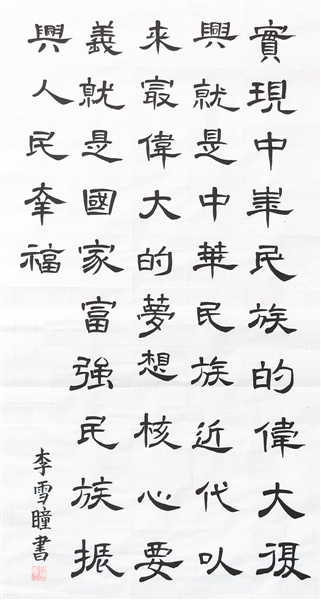 實現中華民族的偉大復
興就是中華民族近代以
來最偉大的夢想核心要
義就是國家富強民族振
興人民幸福
李雪瞳書